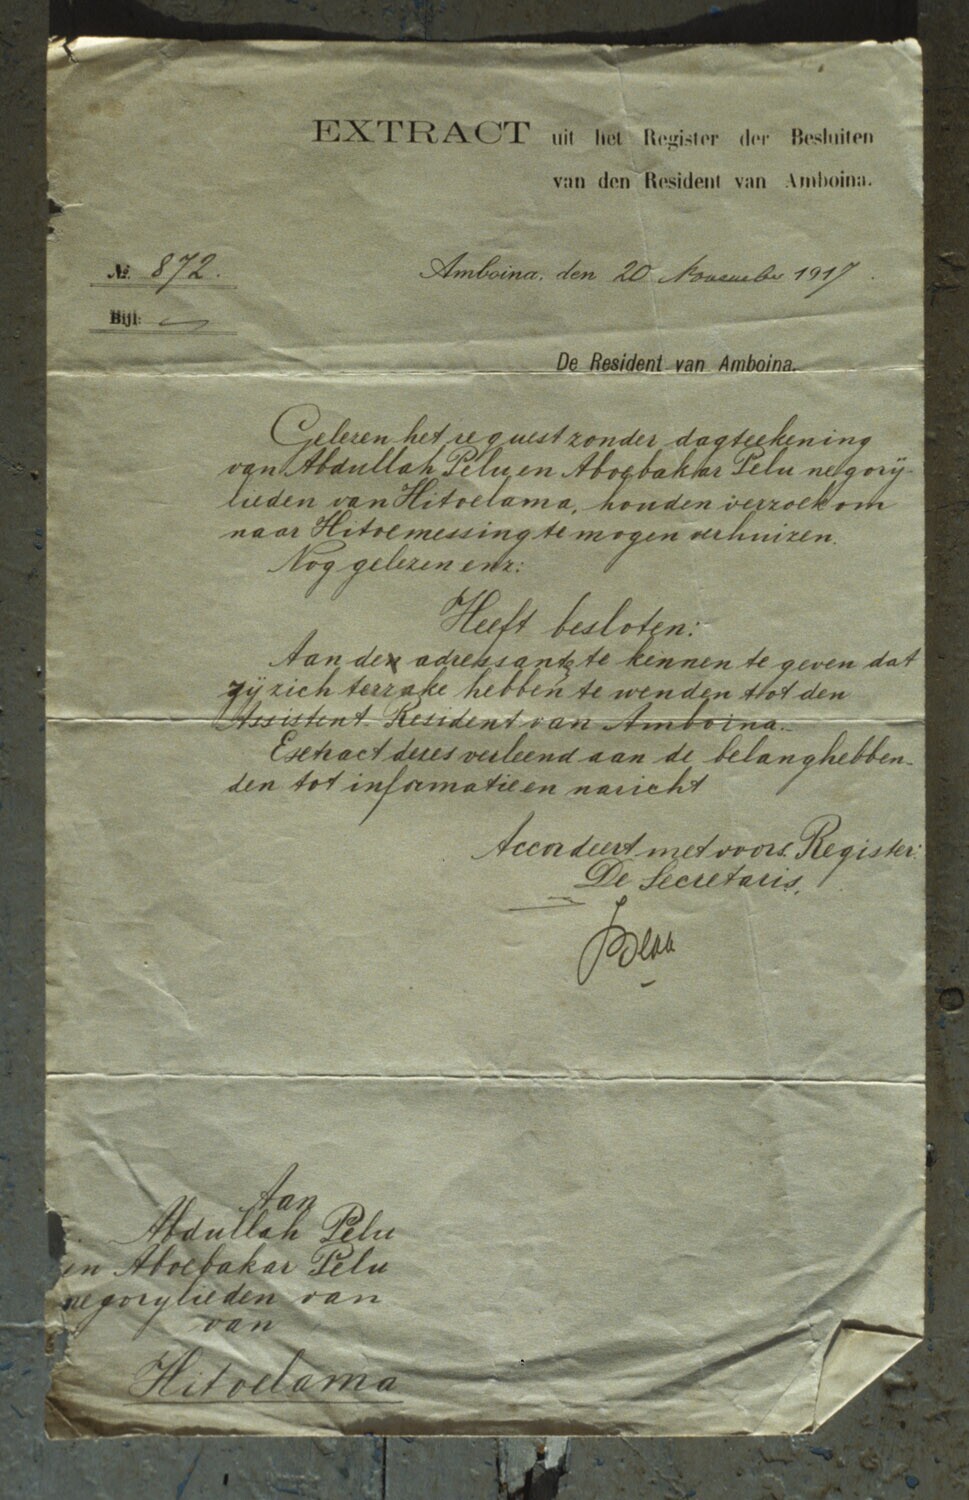 EXTRACT uit het Register der Besluiten
van den Resident van Amboina.
No. 872.
Amboina, den 20 November 1917.
Bijl:
De Resident van Amboina.
Gelezen het request zonder dagteekening
van Abdullah Pelu en Aboebakar Pelu negory-
lieden van Hitoelama, houden verzoek om
naar Hitoemessing te mogen verhuizen.
Nog gelezen enz:
Heeft besloten:
Aan de adressanten te kennen te geven dat
zij zich terzake hebben te wenden tot den
Assistent Resident van Amboina.
Extract dezes verleend aan de belanghebben-
den tot informatie en naricht
Accordeert met voors. Register:
De Secretaris,
Aan
Abdullah Pelu
en Aboebakar Pelu
negorylieden van
van
Hitoelama